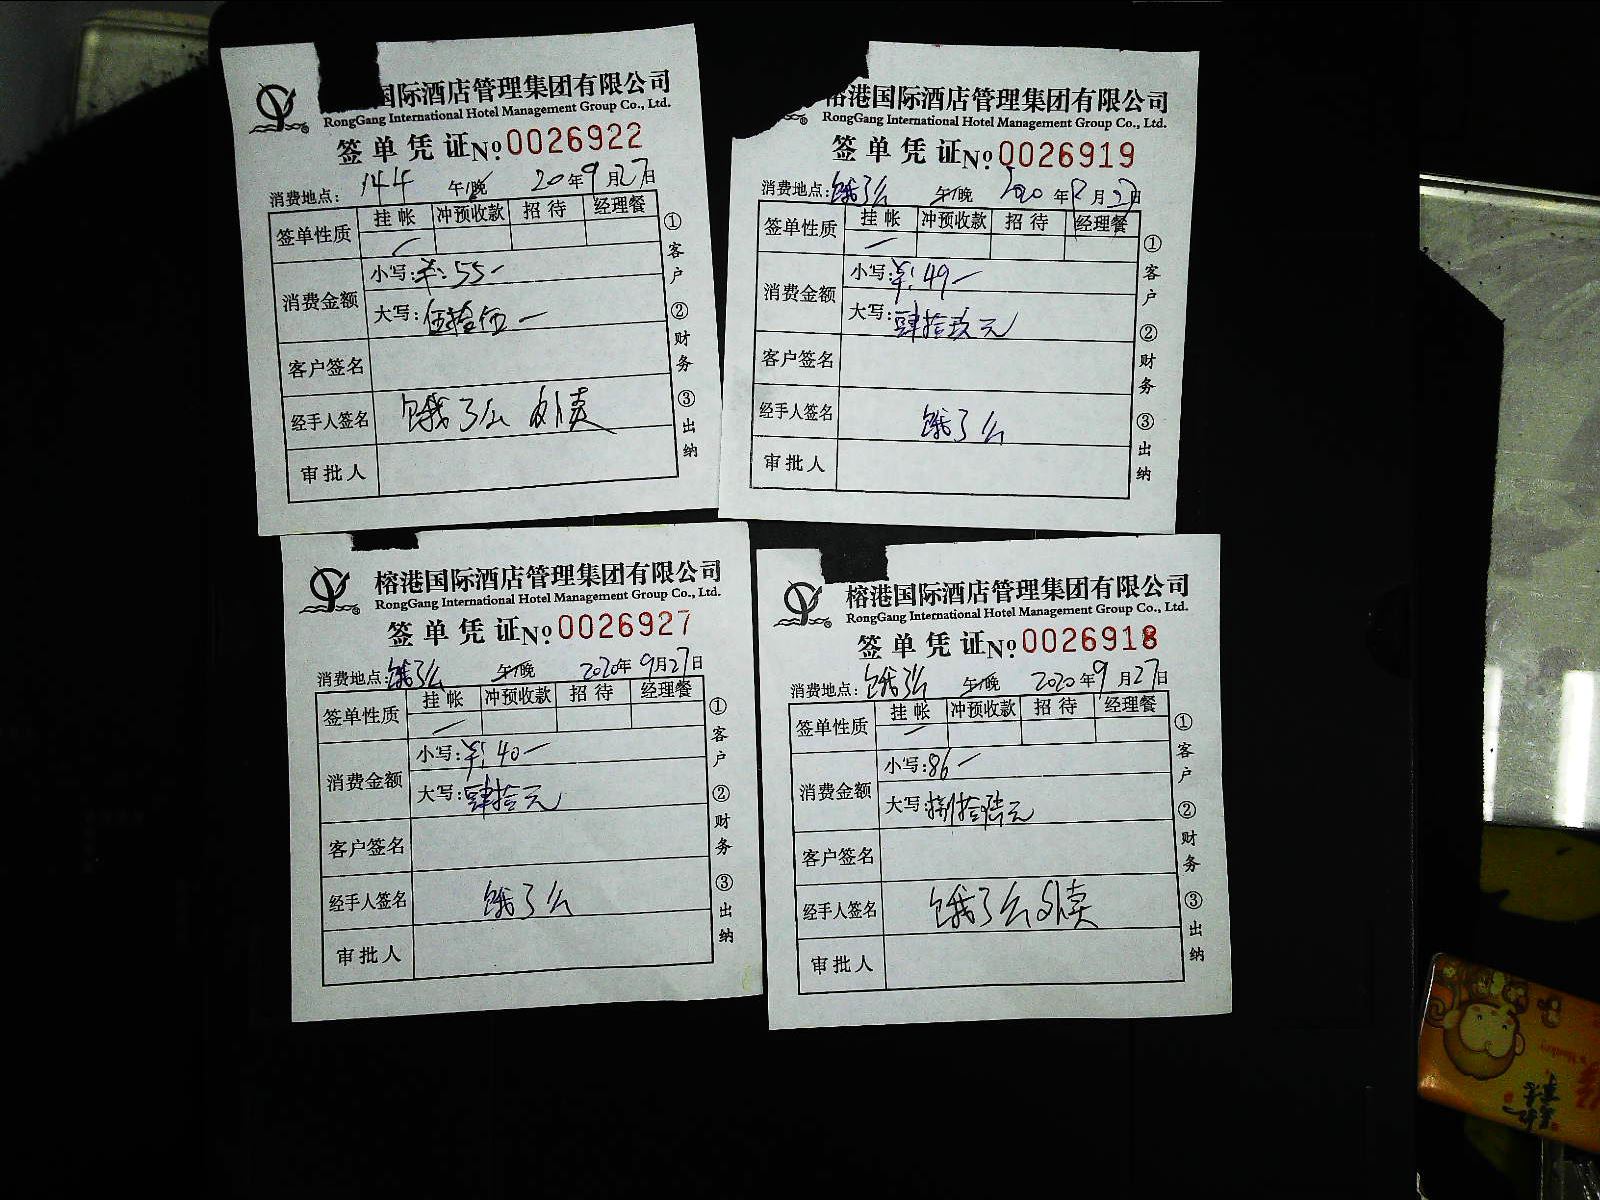 国际酒店管理集团有限公司
RongGang International Hotel Management Group Co., Ltd.
签单凭证 No. 0026922
消费地点: 144 午/晚 20年9月27日
签单性质 挂帐 冲预收款 招待 经理餐
消费金额 小写: ¥: 55—
大写: 伍拾伍—
客户签名
经手人签名 饿了么 外卖
审批人
①客户 ②财务 ③出纳
榕港国际酒店管理集团有限公司
RongGang International Hotel Management Group Co., Ltd.
签单凭证 No. 0026919
消费地点: 饿了么 午/晚 2020年月27日
签单性质 挂帐 冲预收款 招待 经理餐
消费金额 小写: ¥: 49—
大写: 肆拾玖元
客户签名
经手人签名 饿了么
审批人
①客户 ②财务 ③出纳
榕港国际酒店管理集团有限公司
RongGang International Hotel Management Group Co., Ltd.
签单凭证 No. 0026927
消费地点: 饿了么 午/晚 2020年9月27日
签单性质 挂帐 冲预收款 招待 经理餐
消费金额 小写: ¥: 40—
大写: 肆拾元
客户签名
经手人签名 饿了么
审批人
①客户 ②财务 ③出纳
榕港国际酒店管理集团有限公司
RongGang International Hotel Management Group Co., Ltd.
签单凭证 No. 0026918
消费地点: 饿了么 午/晚 2020年9月27日
签单性质 挂帐 冲预收款 招待 经理餐
消费金额 小写: 86—
大写: 捌拾陆元
客户签名
经手人签名 饿了么外卖
审批人
①客户 ②财务 ③出纳